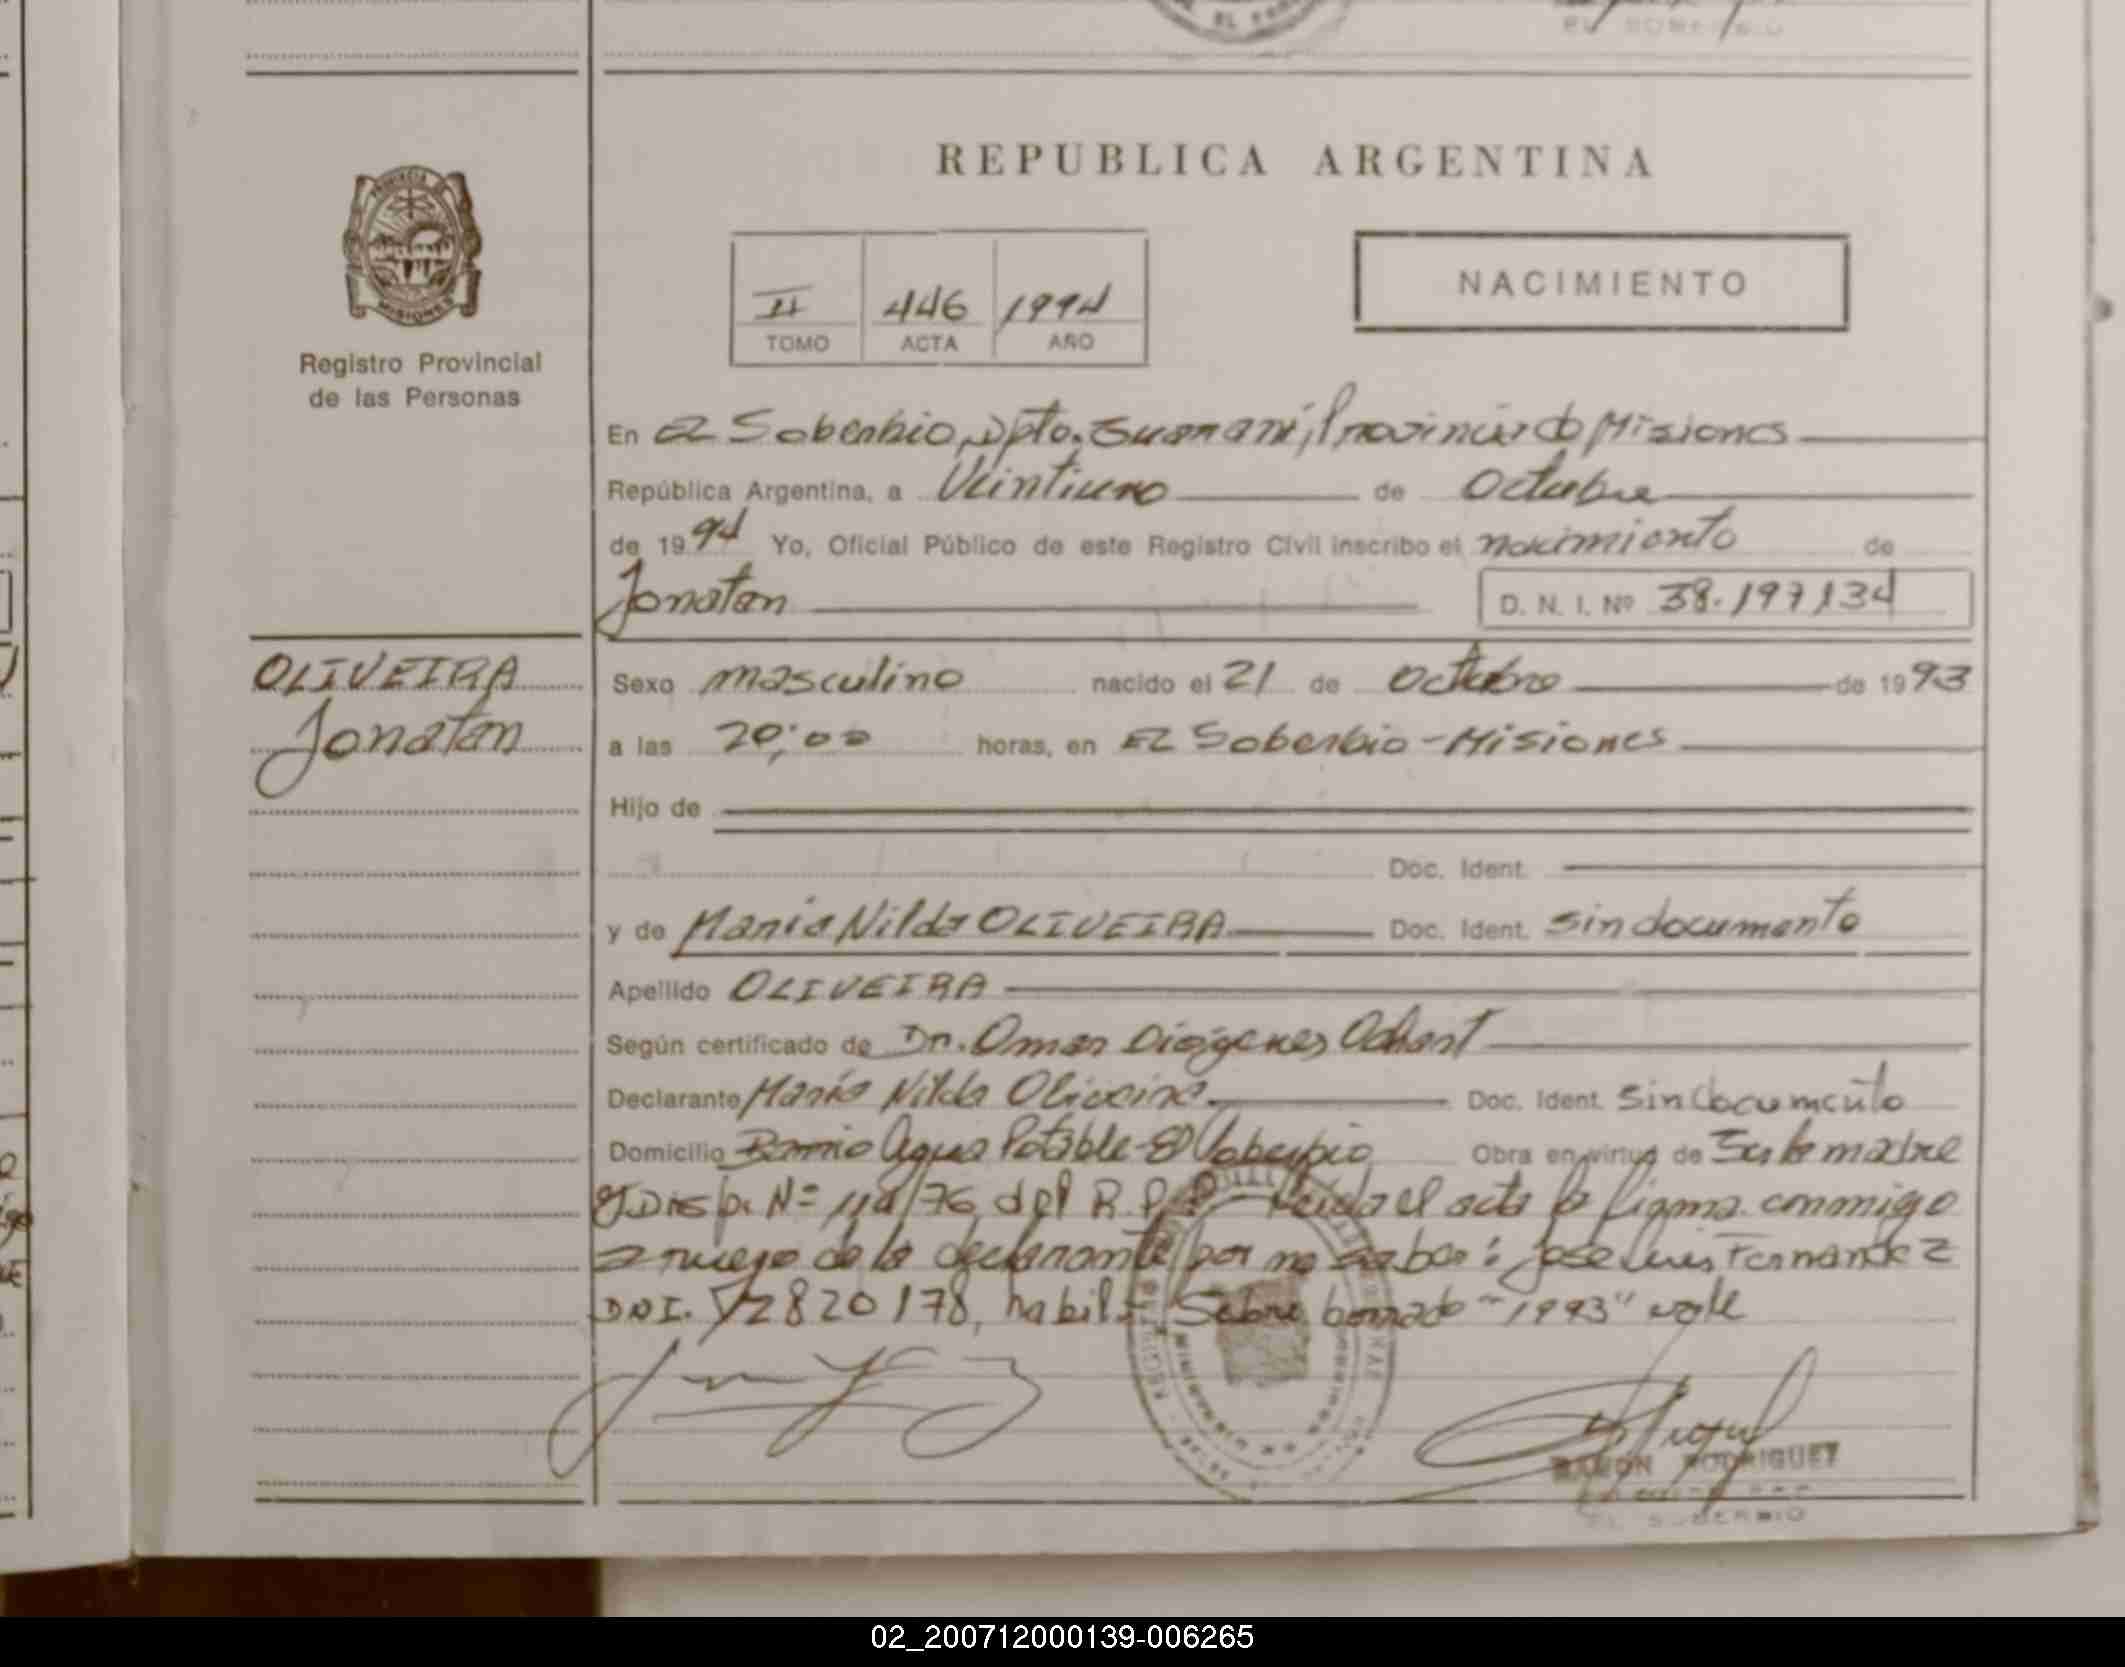 EL SOBERBIO
REPUBLICA ARGENTINA
PROVINCIA DE
MISIONES
Registro Provincial
de las Personas
II 446 1994
TOMO ACTA AÑO
NACIMIENTO
En El Soberbio, Dpto. Guaraní, Provincia de Misiones
República Argentina, a Veintiuno de Octubre
de 1994 Yo, Oficial Público de este Registro Civil inscribo el nacimiento de
Jonatan D. N. I. Nº 38.197134
OLIVEIRA
Jonatan
Sexo masculino nacido el 21 de Octubre de 1993
a las 20:00 horas, en El Soberbio - Misiones
Hijo de
Doc. Ident.
y de María Nilda OLIVEIRA Doc. Ident. sin documento
Apellido OLIVEIRA
Según certificado de Dr. Omar Diógenes
Declarante María Nilda Oliveira Doc. Ident. sin documento
Domicilio Barrio Agua Potable - El Soberbio Obra en virtud de Ser la madre
y Disp. Nº /76 del R. P. Leída el acta la firma conmigo
a ruego de la declarante por no saber: José Luis Fernandez
DNI. 12820178, habil. Sobre borrado "1993" vale
RAMON RODRIGUEZ
EL SOBERBIO
02_200712000139-006265